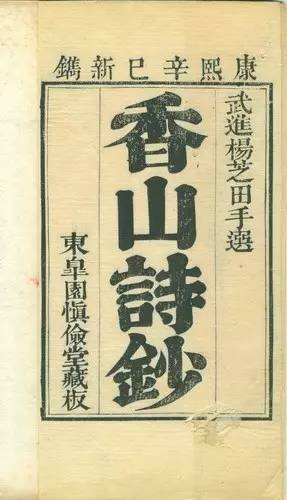 康熙辛巳新鐫
武進楊芝田手選
香山詩鈔
東皐園慎儉堂藏板